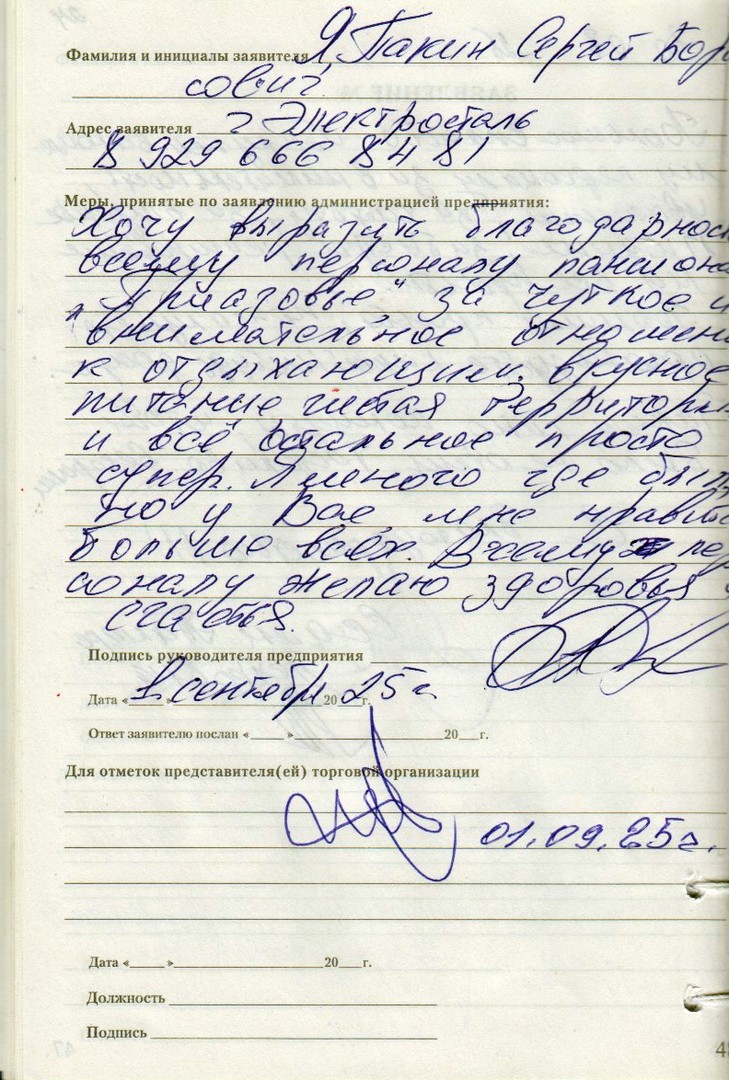 Фамилия и инициалы заявителя Я Пакин Сергей Бор
сович
Адрес заявителя г Электросталь
8 929 666 84 81
Меры, принятые по заявлению администрацией предприятия:
Хочу выразить благодарнос
всему персоналу пансиона
"Приазовье" за чуткое и
внимательное отношен
к отдыхающим, вкусное
питание, чистая территори
и всё остальное просто
супер. Я много где был,
но у Вас, мне нравит
больше всех. Всему пер
соналу желаю здоровья и
счастья.
Подпись руководителя предприятия
Дата «1» сентября 2025 г.
Ответ заявителю послан «___» ___ 20__г.
Для отметок представителя(ей) торговой организации
01.09.25г.
Дата «___» ___ 20__г.
Должность
Подпись